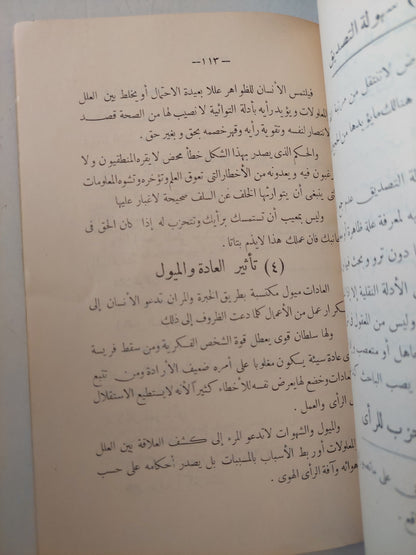 — ١١٣ —
فيلتمس الأنسان للظواهر عللا بعيدة الاحتمال أو يخلط بين العلل
المعلولات ويؤيد رأيه بأدلة التوائية لا نصيب لها من الصحة قصد
لانتصار لنفسه وتقوية رأيه وقهر خصمه بحق وبغير حق .
والحكم الذى يصدر بهذا الشكل خطأ محض لا يقره المنطقيون ولا
يرغبون فيه ويعدونه من الأخطار التى تعوق العلم وتؤخره وتشوه المعلومات
تى ينبغى أن يتوارثها الخلف عن السلف صحيحة لا غبار عليها
وليس بمعيب أن تستمسك برأيك وتتحزب له إذا كان الحق فى
جانبك فان عملك هذا لايذم بتاتا .
(٤) تأثير العادة والميول
العادات ميول مكتسبة بطريق الخبرة والمران تدعو الأنسان إلى
كرار عمل من الأعمال كما دعت الظروف إلى ذلك
ولها سلطان قوى يعطل قوة الشخص الفكرية ومن سقط فريسة
عادة سيئة يكون مغلوبا على أمره ضعيف الأرادة ومن تتبع
العادات وخضع لها يعرض نفسه للأخطاء كثيرا لأنه لايستطيع الاستقلال
الرأى والعمل .
والميول والشهوات لاتدعو المرء إلى كشف العلاقة بين العلل
المعلولات أو ربط الأسباب بالمسببات بل يصدر أحكامه على حسب
هوائه وآفة الرأى الهوى .
سهولة التصديق
لاتنتقل من
هنالك مايؤيدها من
التصديق
لمعرفة علة ظاهرة
دون ترو وبحث
الأدلة النقلية
وليس من المعقول
أو متعصب
يصب الباحث
حزب للرأى
على